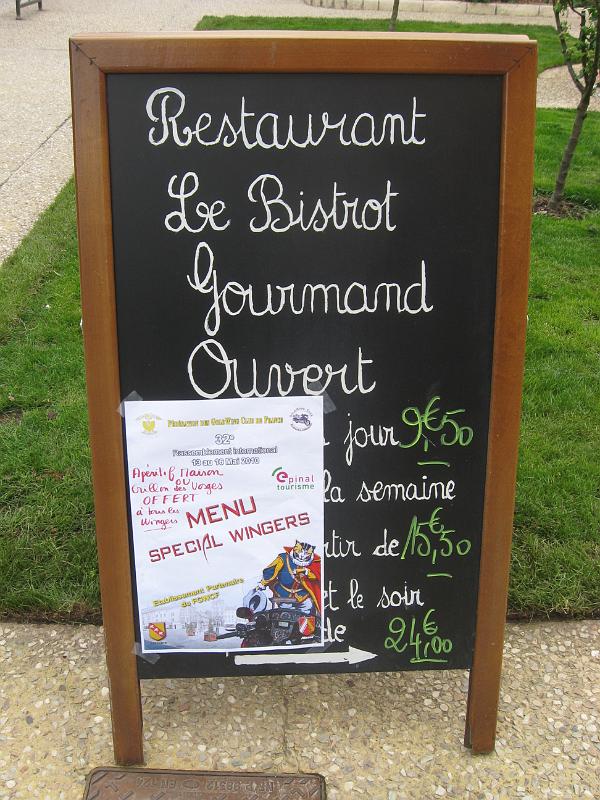 Restaurant
Le Bistrot
Gourmand
Ouvert
jour 9€,50
la semaine
rtir de 15€,50
et le soir
de 24€,00
FÉDÉRATION DES GOLDWING CLUB DE FRANCE
32e
Rassemblement International
13 au 16 Mai 2010
Apéritif Maison
ou
Grillon des Vosges
OFFERT
à tous les
Wingers
epinal
tourisme
MENU
SPECIAL WINGERS
Etablissement Partenaire
du FGWCF